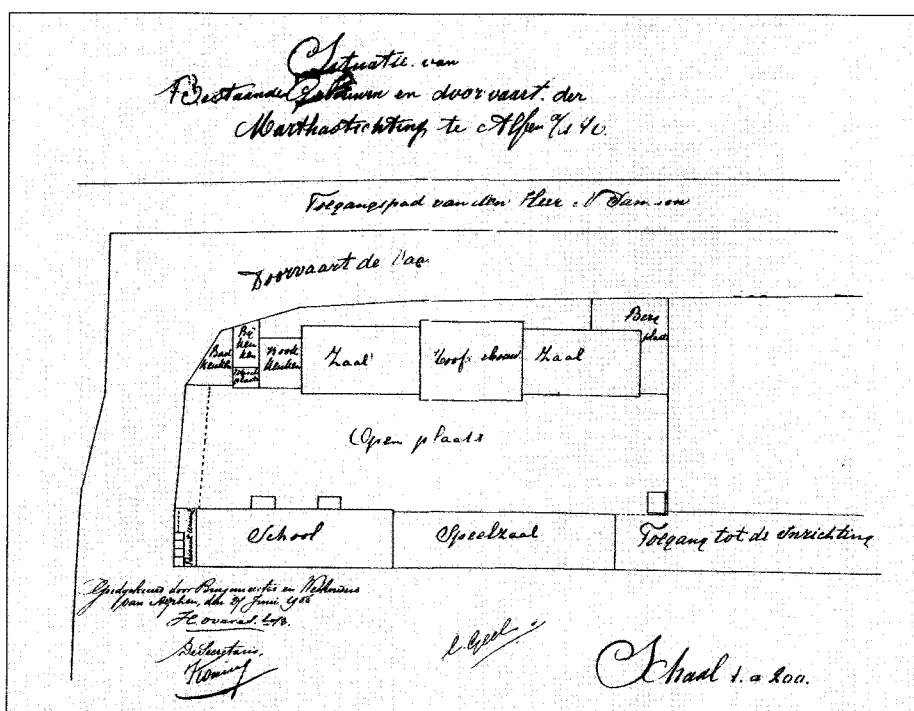 Situatie van
Bestaande Gebouwen en doorvaart der
Marthastichting te Alfen a/d
Toegangspad van den Heer Samsom
Doorvaart de
Bad keuken
Bij keu ken
Kook keuken
Zaal
Hoofd
Zaal
Berg plaats
Open plaats
School
Speelzaal
Toegang tot de Inrichting
Goedgekeurd door Burgemeester en Wethouders
van Alphen, den 27 Juni
De Secretaris,
Schaal 1 a 200.